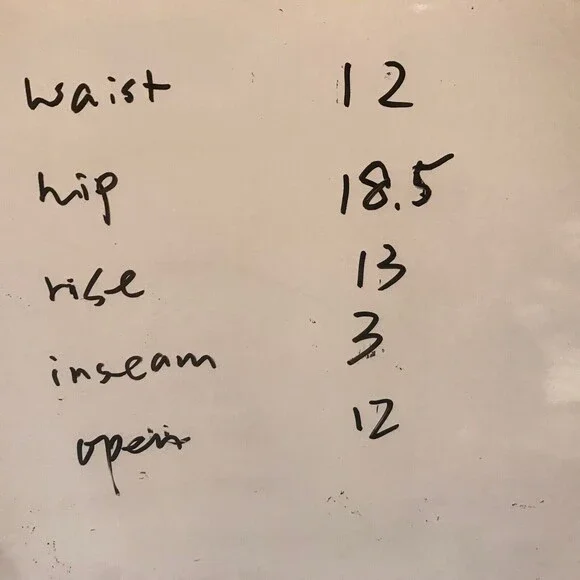 waist 12
hip 18.5
rise 13
inseam 3
12